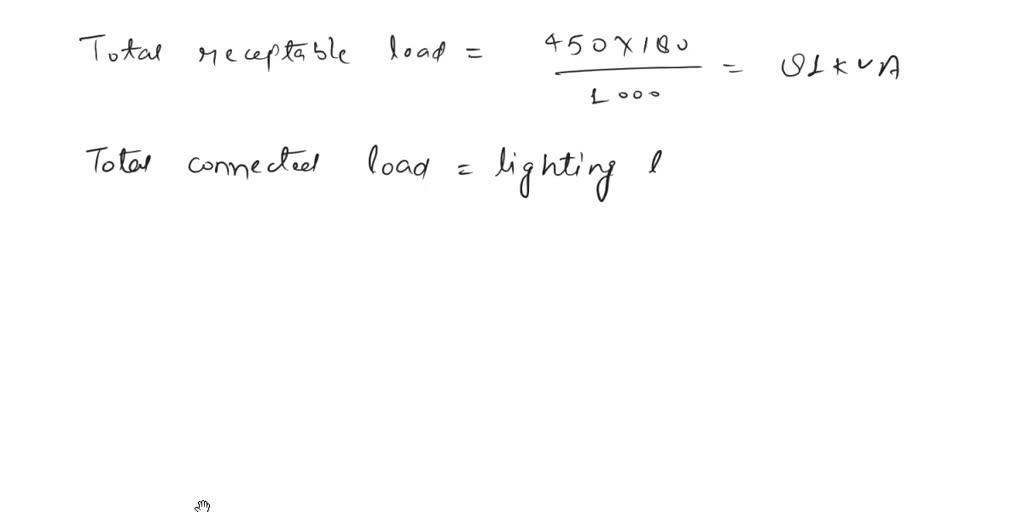 Total receptable load = 450X180 / 1000 = 81 KVA
Total connected load = lighting l